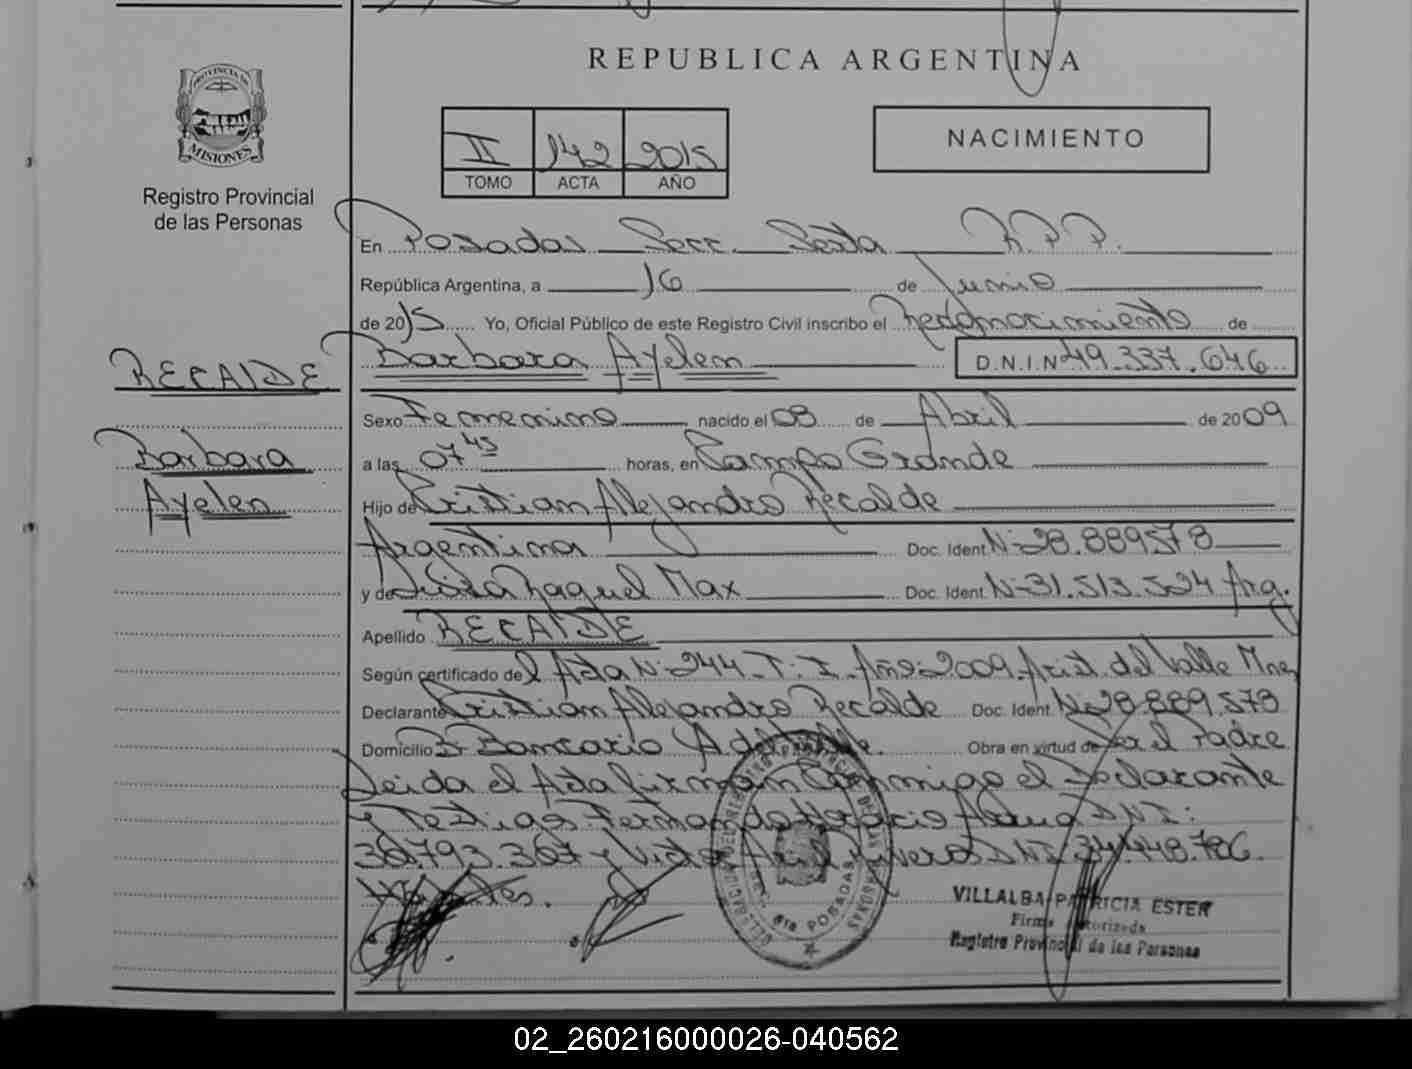 REPUBLICA ARGENTINA
PROVINCIA DE
MISIONES
Registro Provincial
de las Personas
II 142 2015
TOMO ACTA AÑO
NACIMIENTO
En Posadas Secc. Sexta R.P.P.
República Argentina, a 16 de Junio
de 2015 Yo, Oficial Público de este Registro Civil inscribo el Reconocimiento de
Barbara Ayelen D.N.I.Nº 49.337.646
RECALDE
Barbara
Ayelen
Sexo Femenino nacido el 08 de Abril de 2009
a las 07 45 horas, en Campo Grande
Hijo de Cristian Alejandro Recalde
Argentina Doc. Ident Nº 28.889578
y de Raquel Max Doc. Ident. Nº 31.513.524 Arg.
Apellido RECALDE
Según certificado del Acta Nº 244 T. I. Año: 2009 Arist. del Valle Mnes
Declarante Cristian Alejandro Recalde Doc. Ident. Nº 28.889.578
Domicilio Bº Bancario A. del Valle. Obra en virtud de Ser el Padre
Leida el Acta firman Conmigo el Declarante
y Testigos Fernando Horacio DNI:
.793.367 y Victor Ariel Rivero DNI 34.448.786.
DELEGACION DEL REGISTRO PROVINCIAL DE LAS PERSONAS
SEC. 6ta POSADAS
VILLALBA PATRICIA ESTER
Firma Autorizada
Registro Provincial de las Personas
02_260216000026-040562